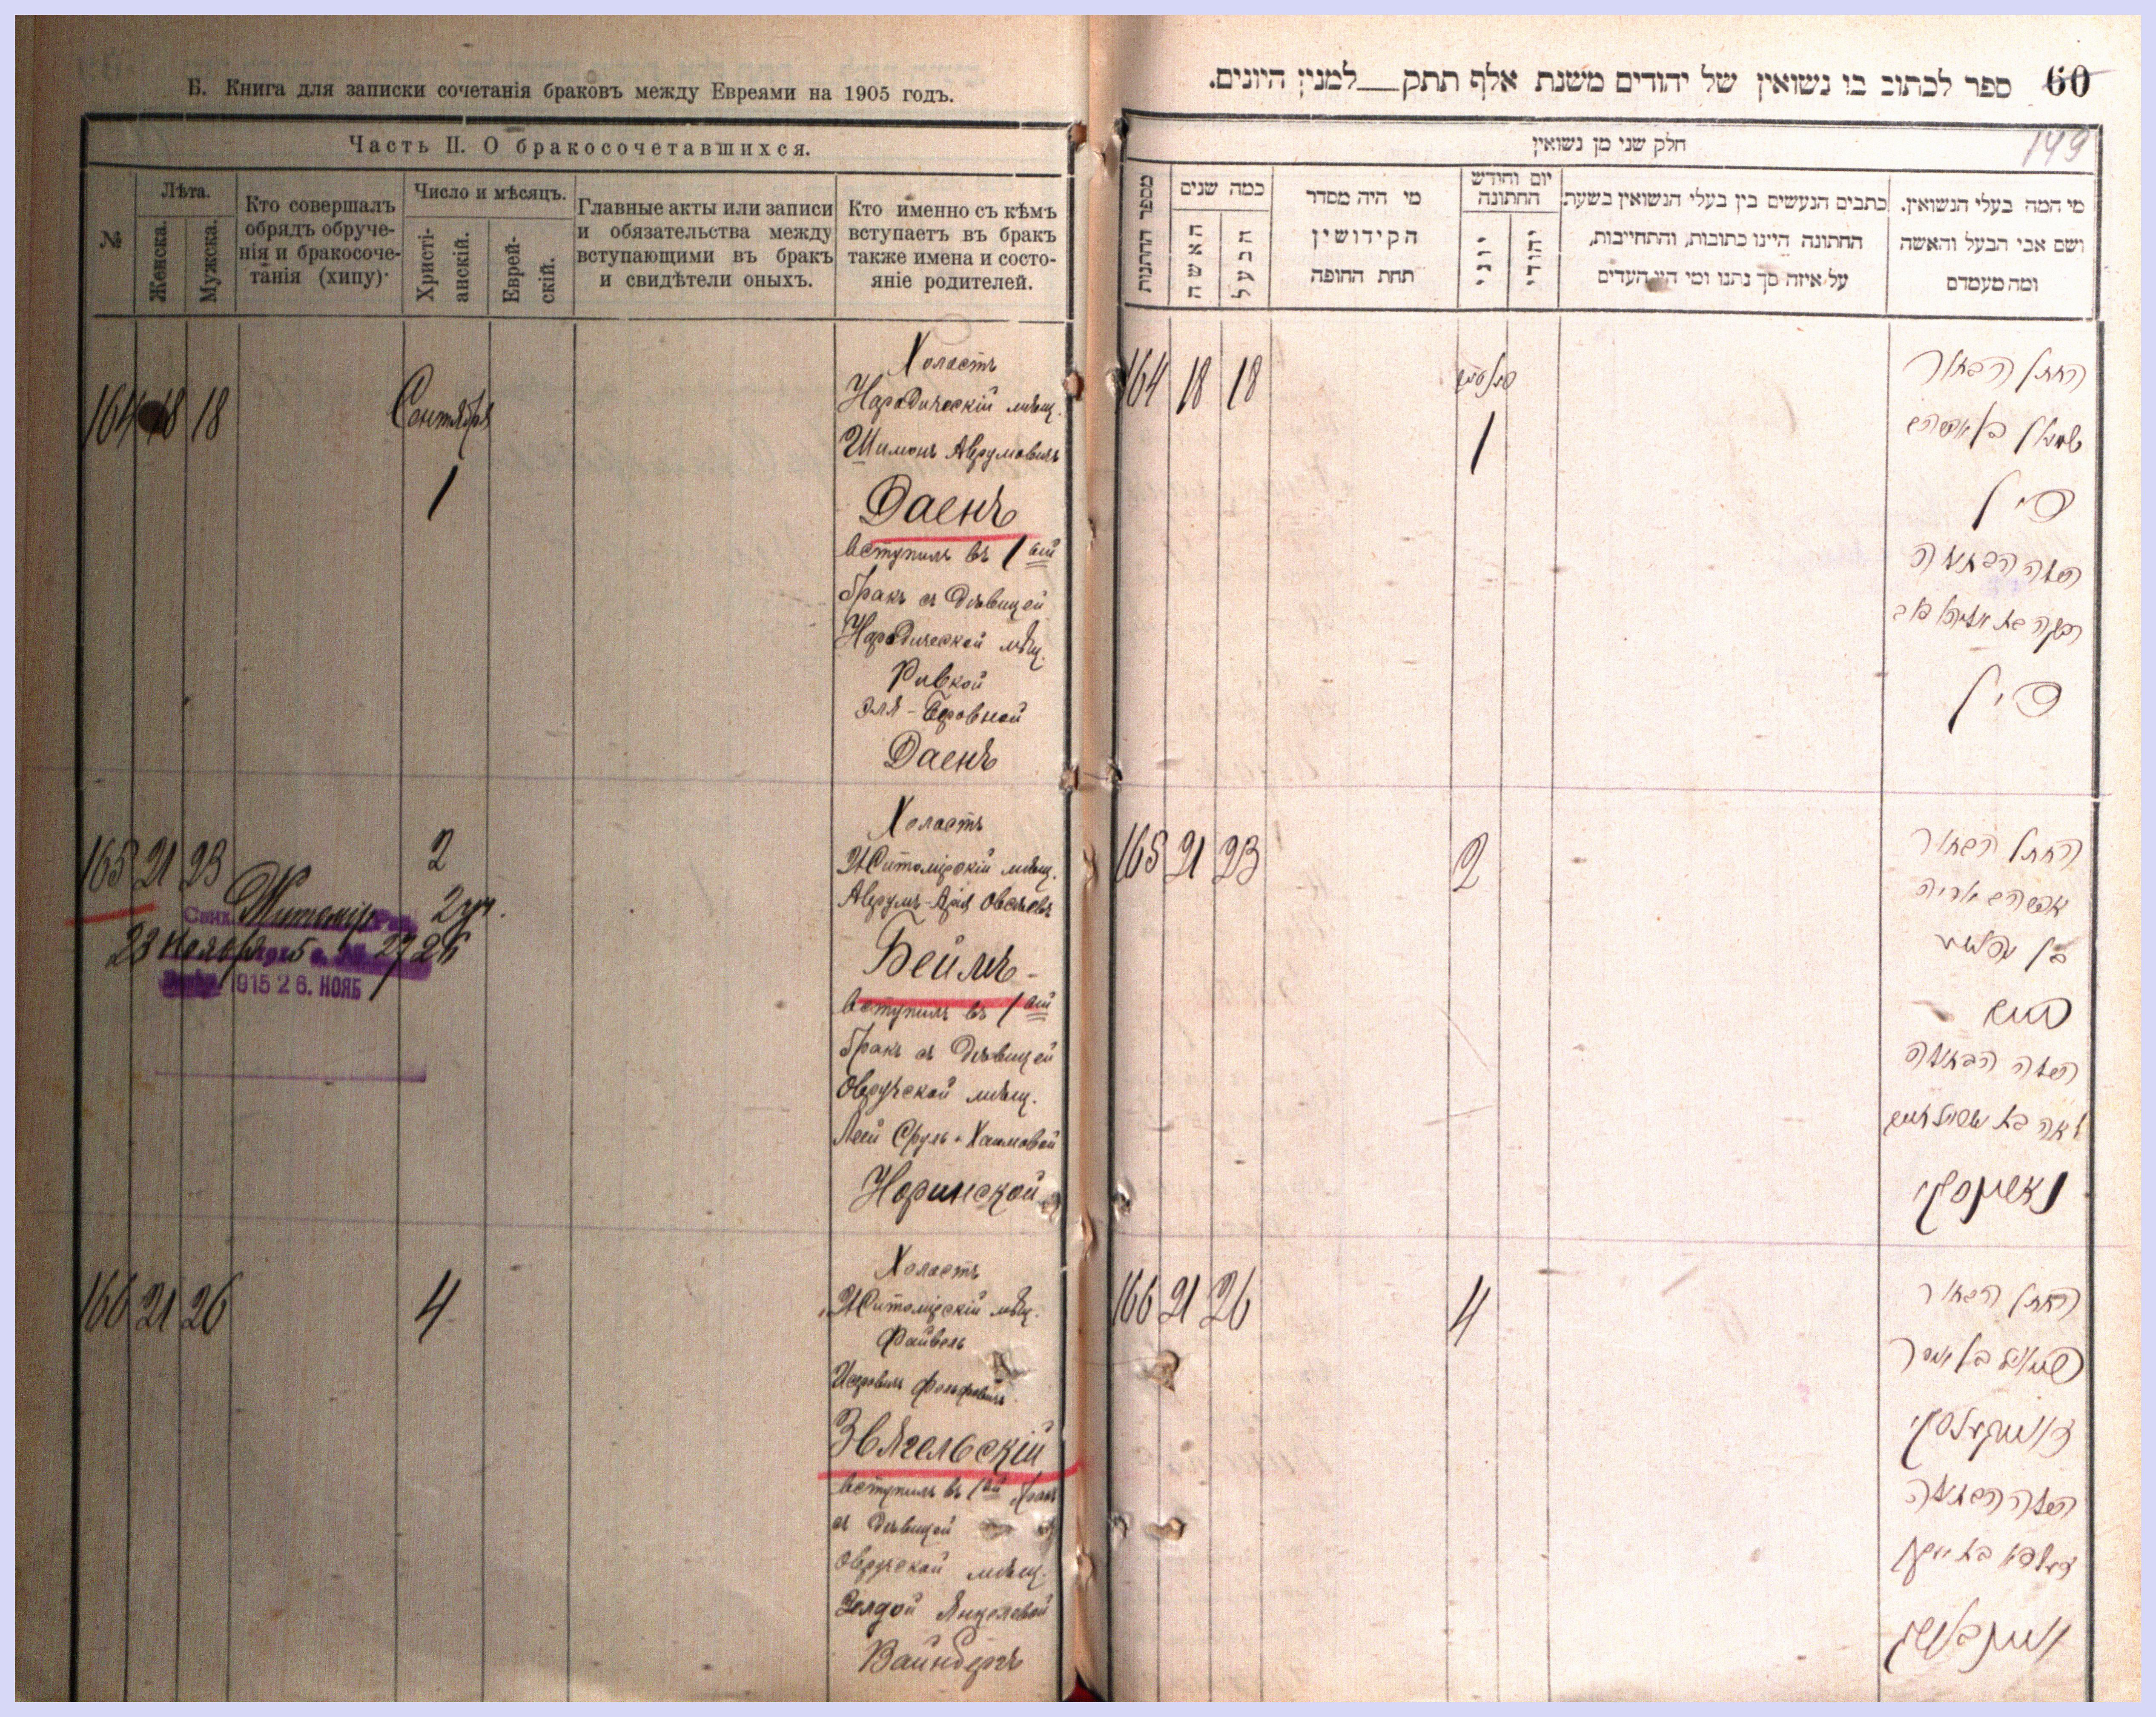 Б. Книга для записки сочетанія браковъ между Евреями на 1905 годъ.
Часть II. О бракосочетавшихся.
№
Лѣта.
Женска.
Мужска.
Кто совершалъ
обрядъ обруче-
нія и бракосоче-
танія (хипу)
Число и мѣсяцъ.
Христі-
анскій.
Еврей-
скій.
Главные акты или записи
и обязательства между
вступающими въ бракъ
и свидѣтели оныхъ.
Кто именно съ кѣмъ
вступаетъ въ бракъ
также имена и состо-
яніе родителей.
164 18 18
Сентября
1
Холастъ
Народическій мѣщ.
Шимонъ Аврумовичъ
Даенъ
вступилъ въ 1 ый
бракъ съ дѣвицей
Народической мѣщ.
Ривкой
Эля-Беровной
Даенъ
165 21 23
2
Житомір
2 уч.
23 Ноября
1915 26. НОЯБ
Холастъ
Житомірскій мѣщ.
Аврумъ-Арія Овсеевъ
Беймъ
вступилъ въ 1 ый
бракъ съ дѣвицей
Овручской мѣщ.
Леей Сруль-Хаимовой
Норинской
166 21 26
4
Холастъ
Житомірскій мѣщ.
Файвель
Звягельскій
вступилъ въ 1 ый бракъ
съ дѣвицей
Овручской мѣщ.
Янкелевой
Вайнбергъ
60 ספר לכתוב בו נשואין של יהודים משנת אלף תתק__למנין היונים.
149
חלק שני מן נשואין
מספר החתונות
כמה שנים
האשה
הבעל
מי היה מסדר
הקידושין
תחת החופה
יום וחודש
החתונה
יוני
יהודי
כתבים הנעשים בין בעלי הנשואין בשעת
החתונה היינו כתובות, והתחייבות,
על איזה סך נתנו ומי היו העדים
מי המה בעלי הנשואין.
ושם אבי הבעל והאשה
ומה מעמדם
164 18 18
1
החתן הבחור
שמעון בן אברהם
דיין
הכלה הבתולה
רבקה בת
דיין
165 21 23
2
החתן הבחור
אברהם אריה
בן
בים
הכלה הבתולה
לאה בת
נארינסקי
166 21 26
4
החתן הבחור
הכלה הבתולה
וויינבערג